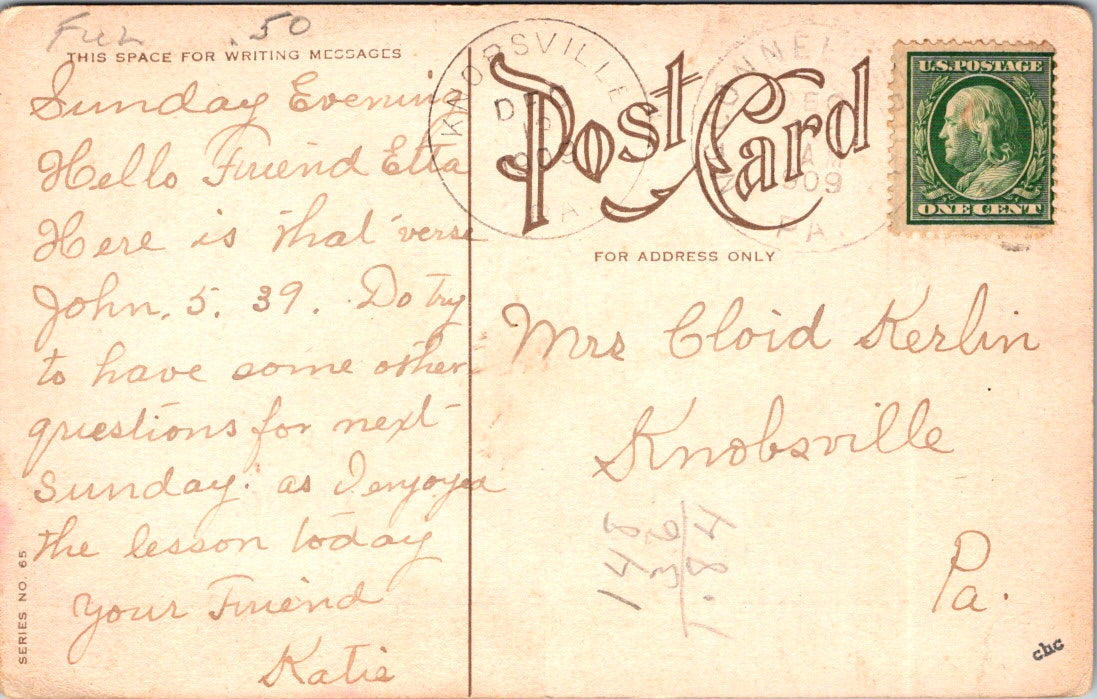 .50
THIS SPACE FOR WRITING MESSAGES
Sunday Evening
Hello Friend Etta
Here is that verse
John. 5. 39. Do try
to have some other
questions for next
Sunday. as I enjoyed
the lesson today
Your Friend
Katie
SERIES NO. 65
KNOBSVILLE
DEC
1909
PA.
Post Card
AM
1909
PA.
U.S. POSTAGE
ONE CENT
FOR ADDRESS ONLY
Mrs Cloid Kerlin
Knobsville
Pa.
148
36
1.84
chc